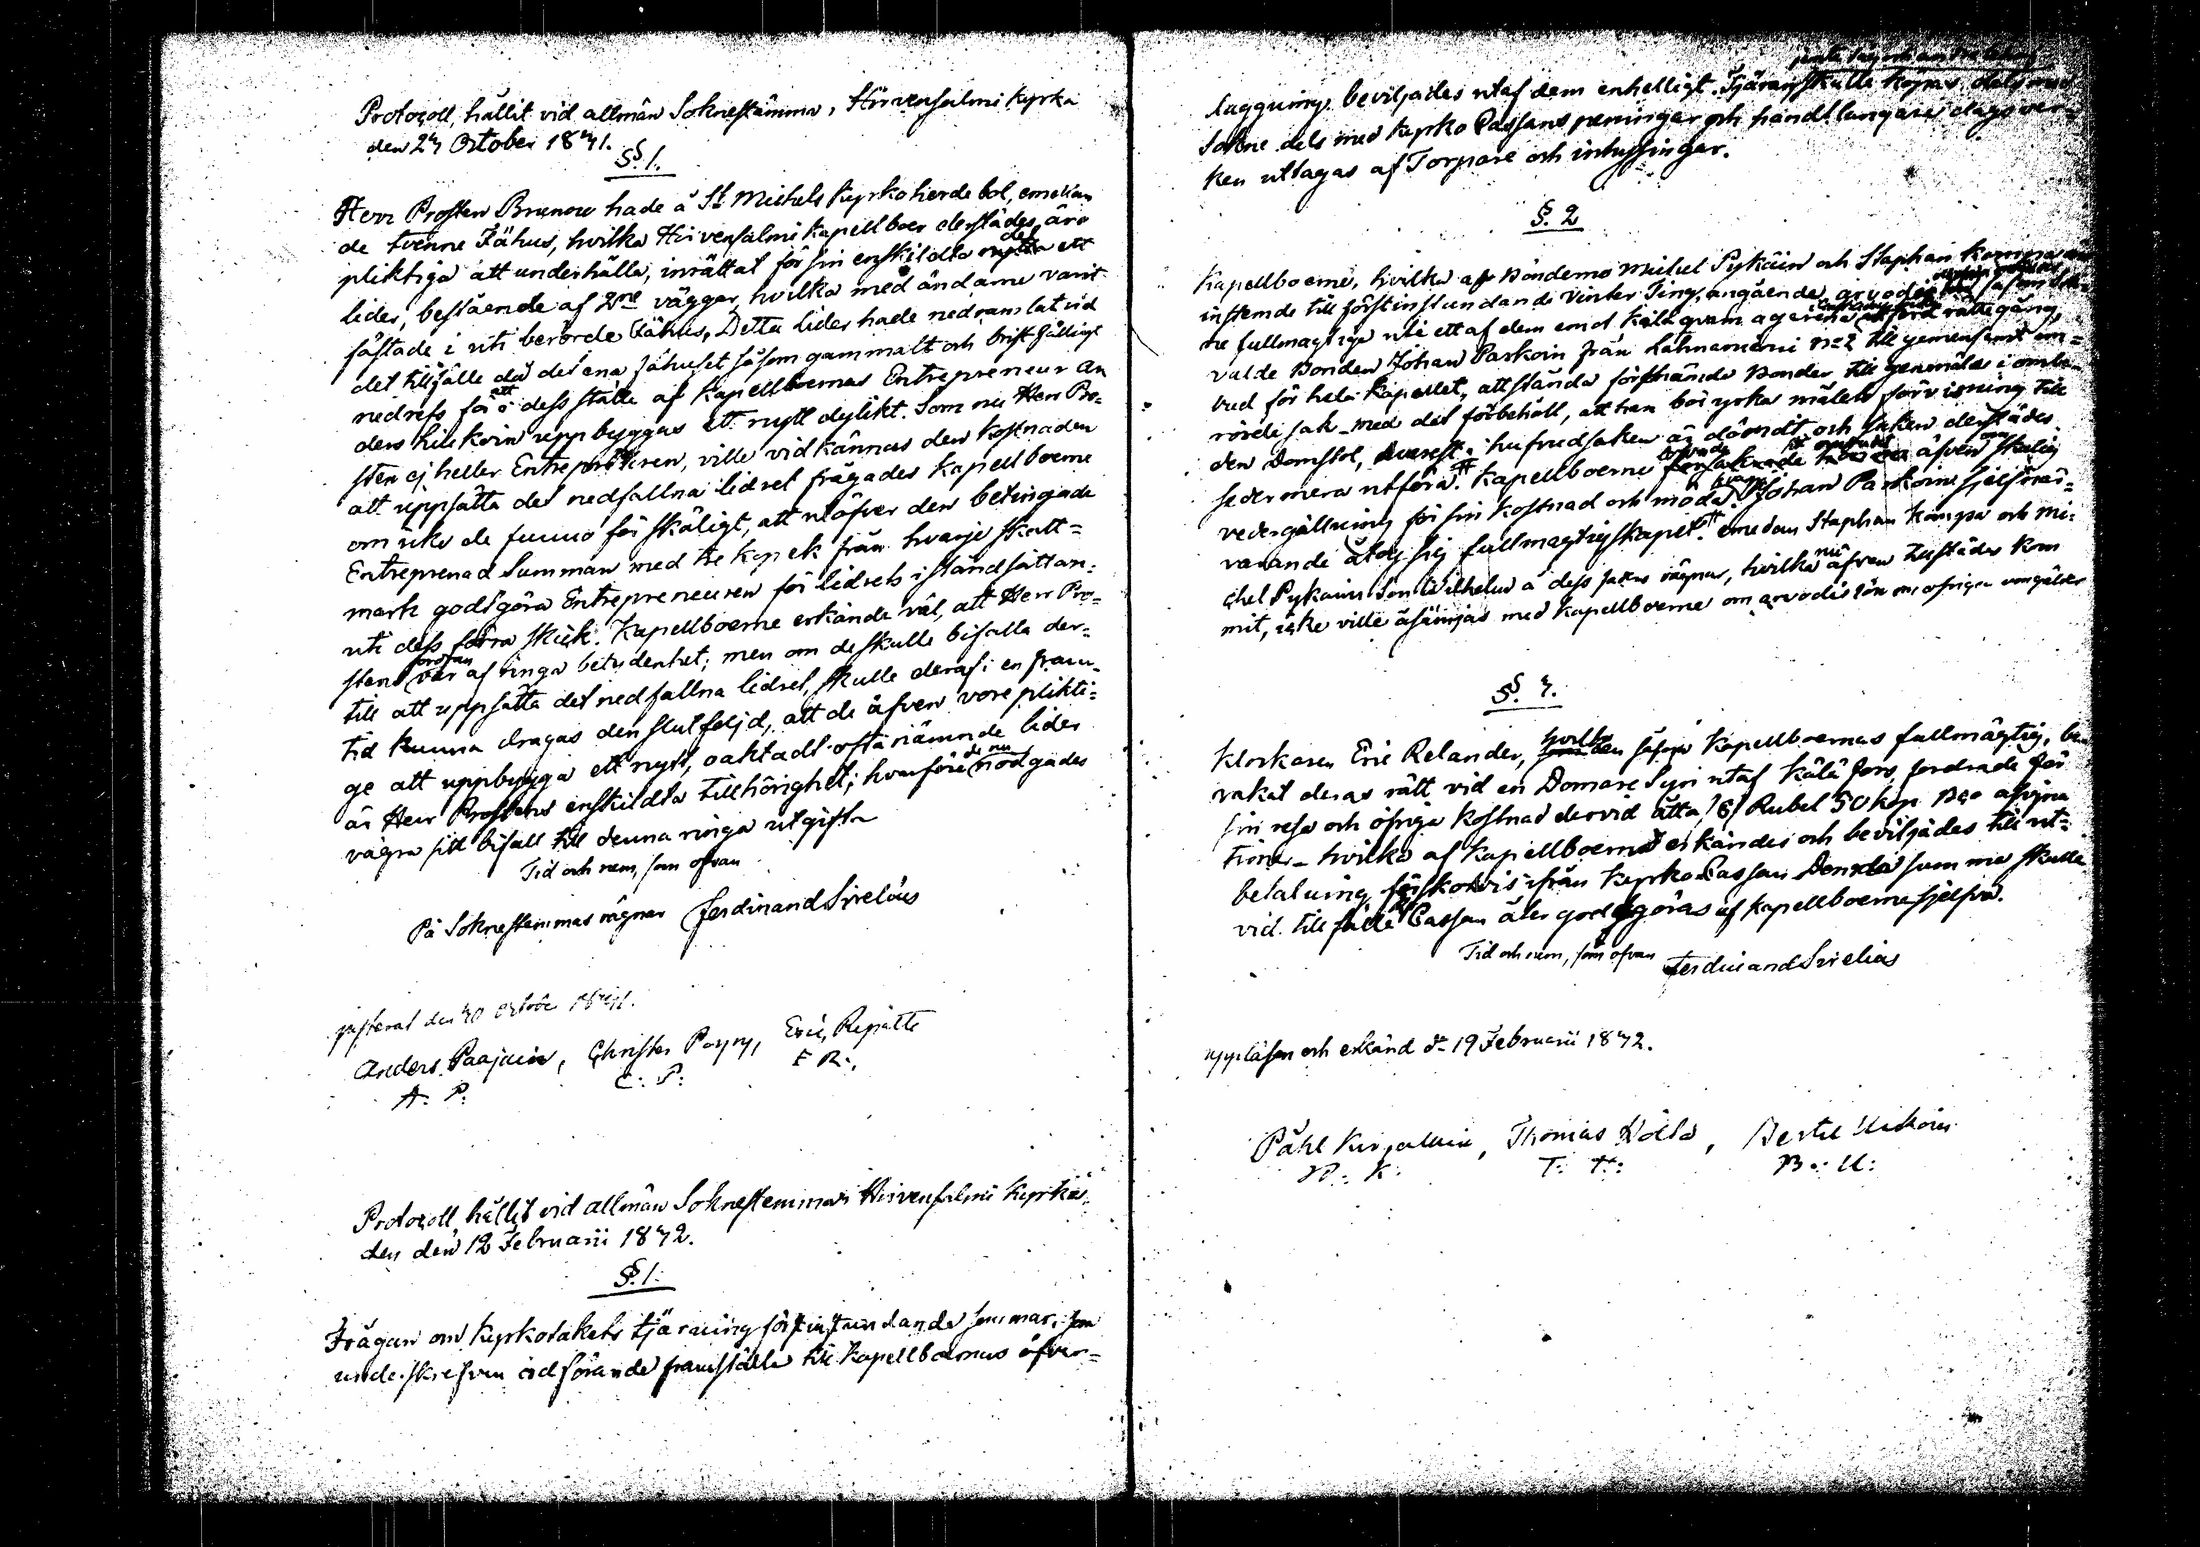 Protocoll, hållit vid allmän Soknestämma, i Hirvensalmi kyrka
den 24 October 1841.
§. 1.
Herr Prosten Brunow hade å St Michels Kyrkoherde bol, emellan
de tvenne Fähus, hvilka Hirvensalmi Kapellboer derstädes äro
pliktiga att underhålla, inrättat för sin enskildta del ett
lider, bestående af 2ne väggar, hvilka med ändarne varit
fästade i uti berörde Fähus, Detta lider hade nedramlat vid
det tillfälle då det ena fähuset såsom gammalt och bristfäldigt
nedrefs för att i dess ställe af Kapellboernas Entrepreneur An
ders Hiiskoin uppbyggas ett nytt dylikt. Som nu Herr Pro-
sten ej heller Entrepreneuren, ville vidkännas den kostnaden
att uppsätta det nedfallna lidret frågades Kapellboerne
om icke de funno för skäligt, att utöfver den betingade
Entreprenad Summan med tre kopek från hvarje skatt-
mark godtgöra Entrepreneuren för lidrets iståndsättan-
uti dess förra skick. Kapellboerne erkände väl, att Herr Pro-
stens var af ringa betydenhet; men om de skulle bifalla der-
till att uppsätta det nedfallna lidret, skulle deraf i en fram-
tid kunna dragas den slutfeljd, att de äfven vore plikti-
ge att uppbygga ett nytt, oaktadt oftanämnde lider
är Herr Prostens enskildta tillhörighet; hvarföre de nu nödgades
vägra sitt bifall till denna ringa utgift
Tid och rum, som ofvan
På Soknestemmas vägnar Ferdinand Sirelius
justerat den 30 October 1841.
Anders Paajain, Christer Poyry, Eric Repatti
A. P. C. P: E R:,
Protocoll, hållit vid allmän Sokne stemma i Hirvensalmi Kyrka
den 12 Februarii 1842.
§. 1.
Frågan om Kyrkotakets tjärning förstinstundande sommar, som
underskrefven ordförande framställde till Kapellboernas öfver-
läggning, beviljades utaf dem enhelligt. Tjäran skulle köpas dels med
Sokne dels med Kyrko Cassans penningar och handtlangare dagsver-
ken uttagas af Torpare och inhysingar.
§. 2
Kapellboerne, hvilka af Bönderne Michel Pykäin och Staphan
instemde till förstinstundande Vinter Ting, angående arvode
valde Bonden Johan Parkoin från Lahnaniemi No 2 till gemensamt om-
bud för hela Kapellet, att stånda förstnämnde Bonder till genmäle i omtv-
rörde sak med det förbehåll, att han bör yrka målets förvisning till
den Domstol, hvarest hufvudsaken är dömdt och saken derstädes
sedermera utföra. Kapellboerne äfven skälig
vedergällning för sin kostnad och möda. Johan Parkoin sjelfnär-
varande åtog sig fullmagtigskapet. emedan Staphan Kämpa och Mi-
chel Pykäins Son Wilhelm å dess Faders vägnar, hvilka nu äfven tillstädes kom
mit, icke ville åsämjas med Kapellboerne om arvodis lön
§. 3.
Klockaren Eric Relander, hvilken såsom Kapellboernas fullmägtig, be
vakat deras rätt vid en Domare Syn utaf fordrade för
sin resa och öfriga kostnad dervid åtta /8/ Rubel 50 kop Bco
hvilka af Kapellboerne erkändes och beviljades till ut-
betalning förskottvis ifrån Kyrko Cassan Denna summa skulle
vid tillfälle Cassan åter godtgöras af Kapellboerne sjelfva.
Tid och rum, som ofvan Ferdinand Sirelius
uppläsen och erkänd d. 19 Februarii 1842.
Påhl Kirjalain, Thomas Hölta, Bertil Uiskoin
P. K. T: H: B.: U: